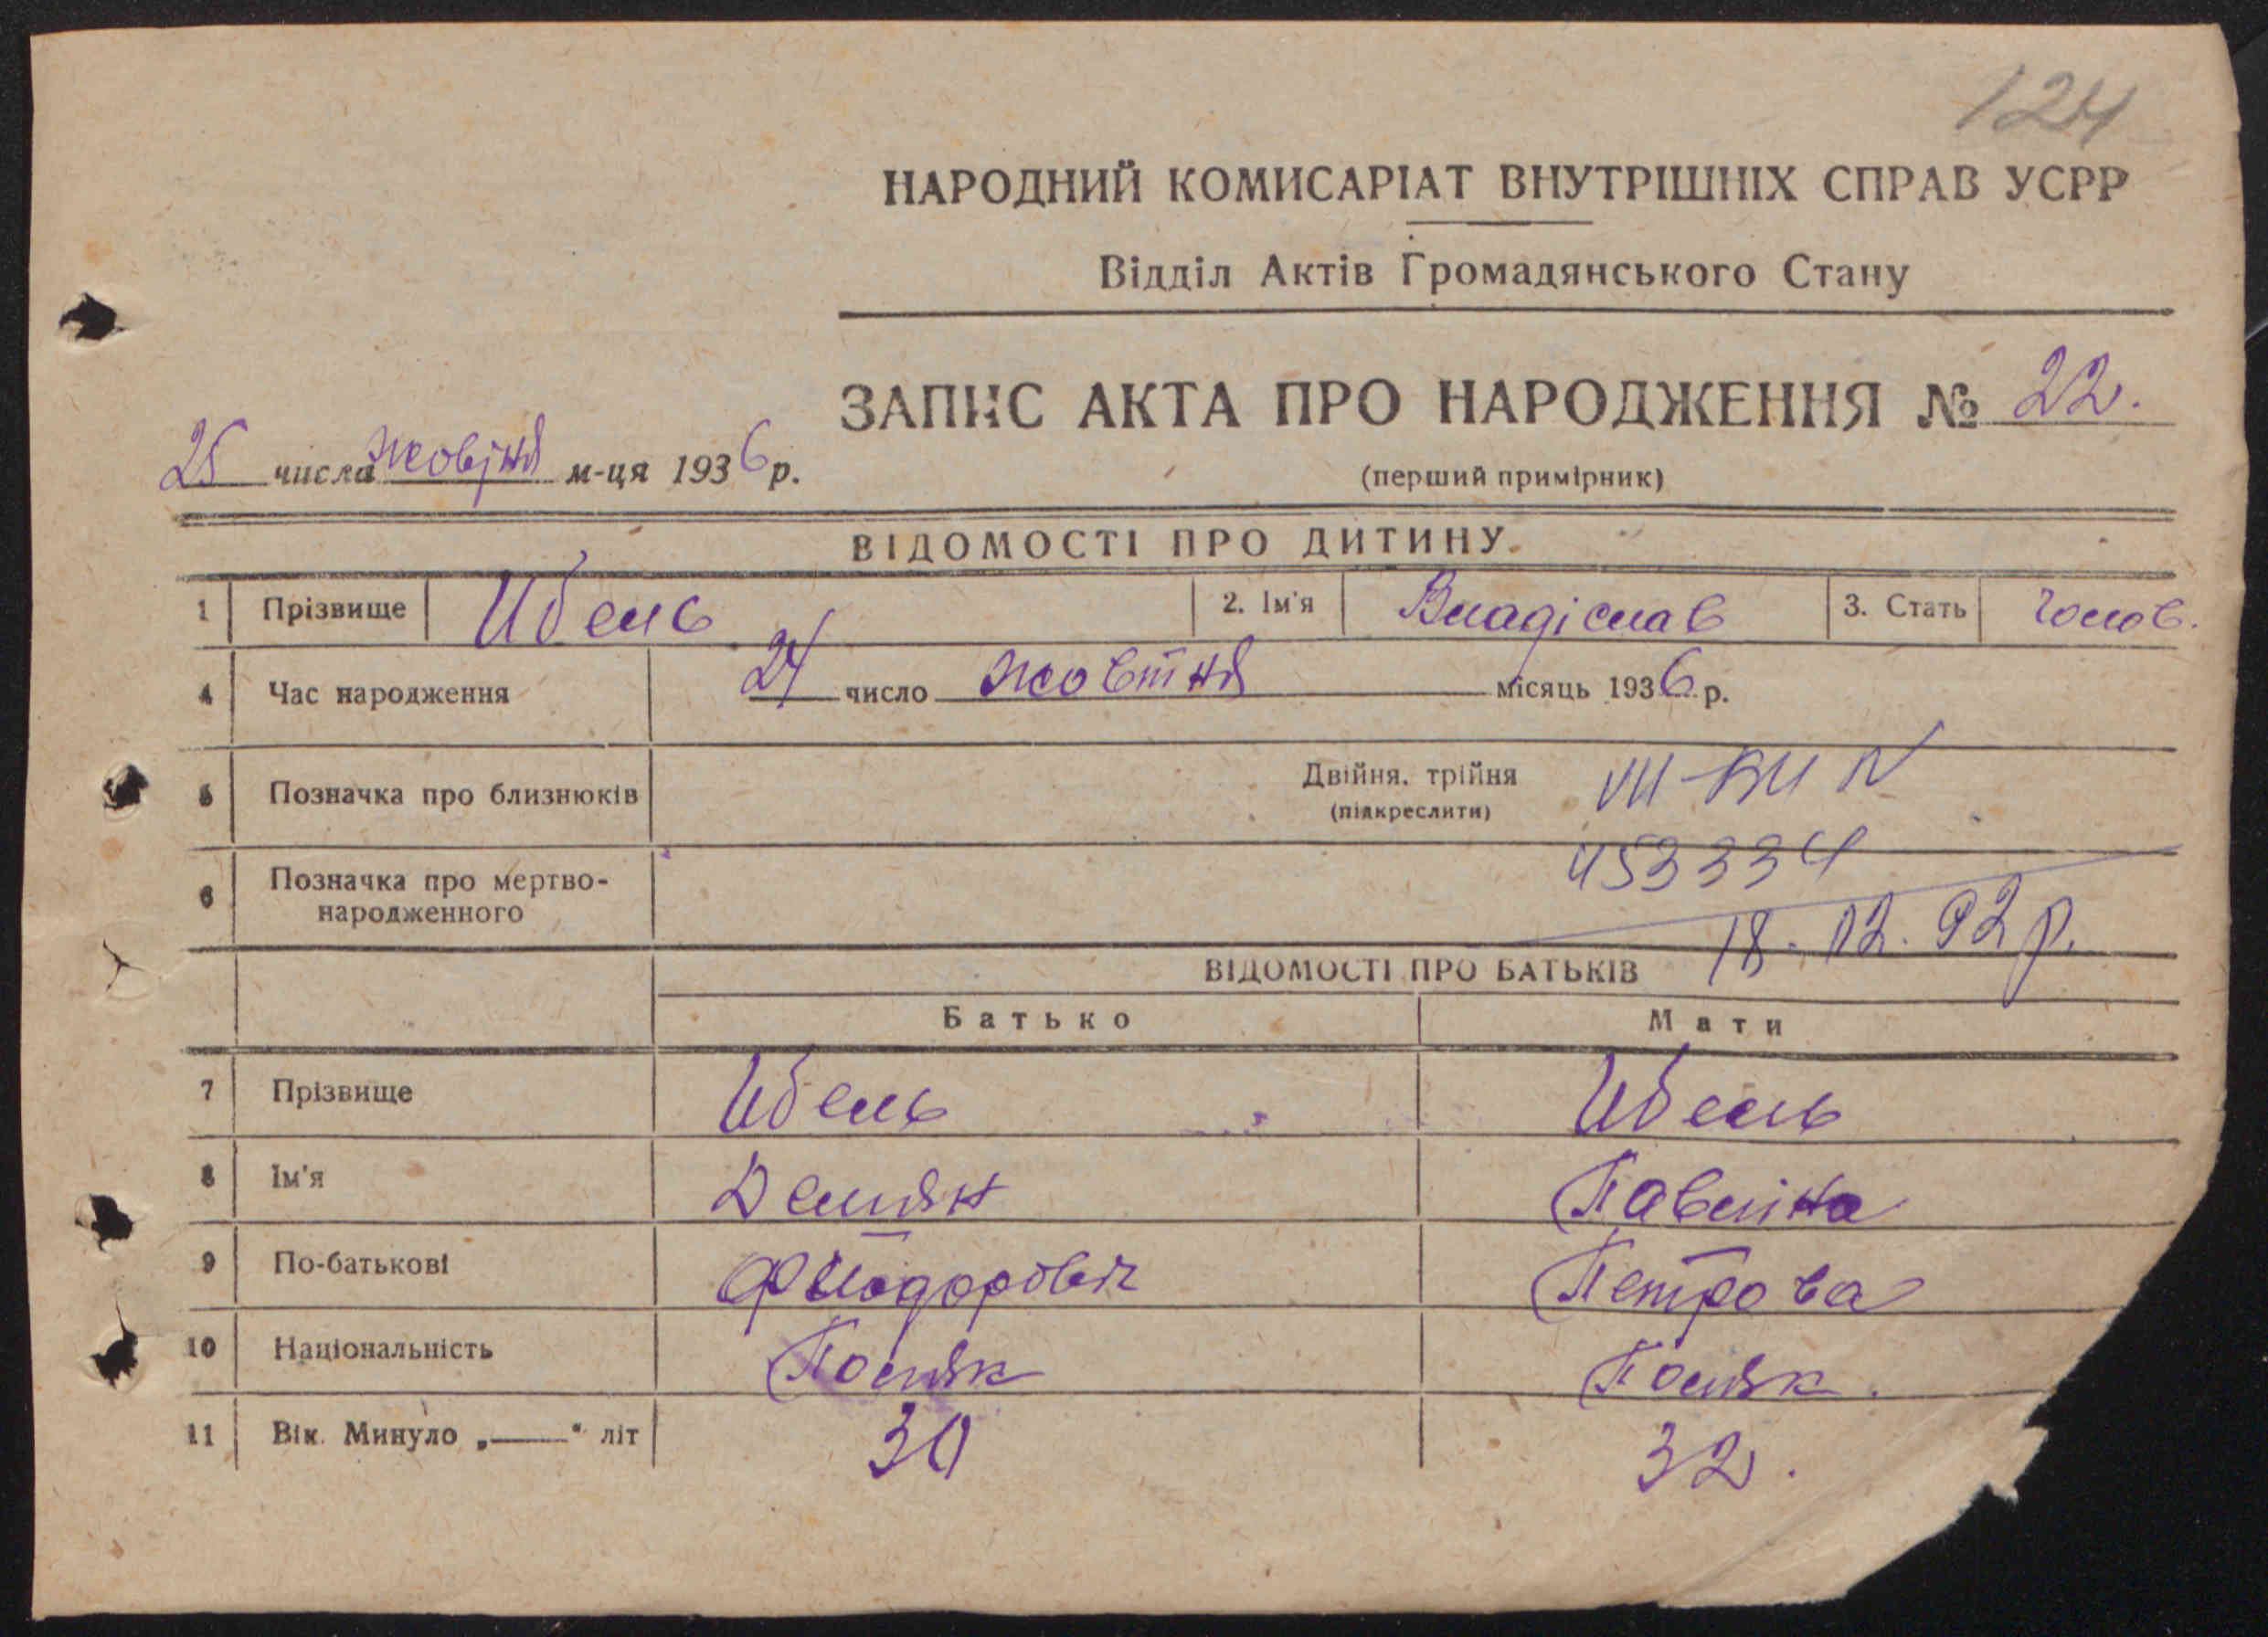 124
НАРОДНИЙ КОМИСАРІАТ ВНУТРІШНІХ СПРАВ УСРР
Відділ Актів Громадянського Стану
ЗАПИС АКТА ПРО НАРОДЖЕННЯ № 22.
25 числа жовтня м-ця 1936 р.
(перший примірник)
ВІДОМОСТІ ПРО ДИТИНУ.
1 Прізвище Ибель 2. Ім'я Владіслав 3. Стать Чолов.
4 Час народження 24 число жовтня місяць 1936 р.
5 Позначка про близнюків Двійня, трійня
(підкреслити)
6 Позначка про мертво-
народженного
453334
18. 02. 92 р.
ВІДОМОСТІ ПРО БАТЬКІВ
Батько Мати
7 Прізвище Ибель Ибель
8 Ім'я Демян Павліна
9 По-батькові Петрова
10 Національність Поляк Поляк.
11 Вік. Минуло „——“ літ 30 32.